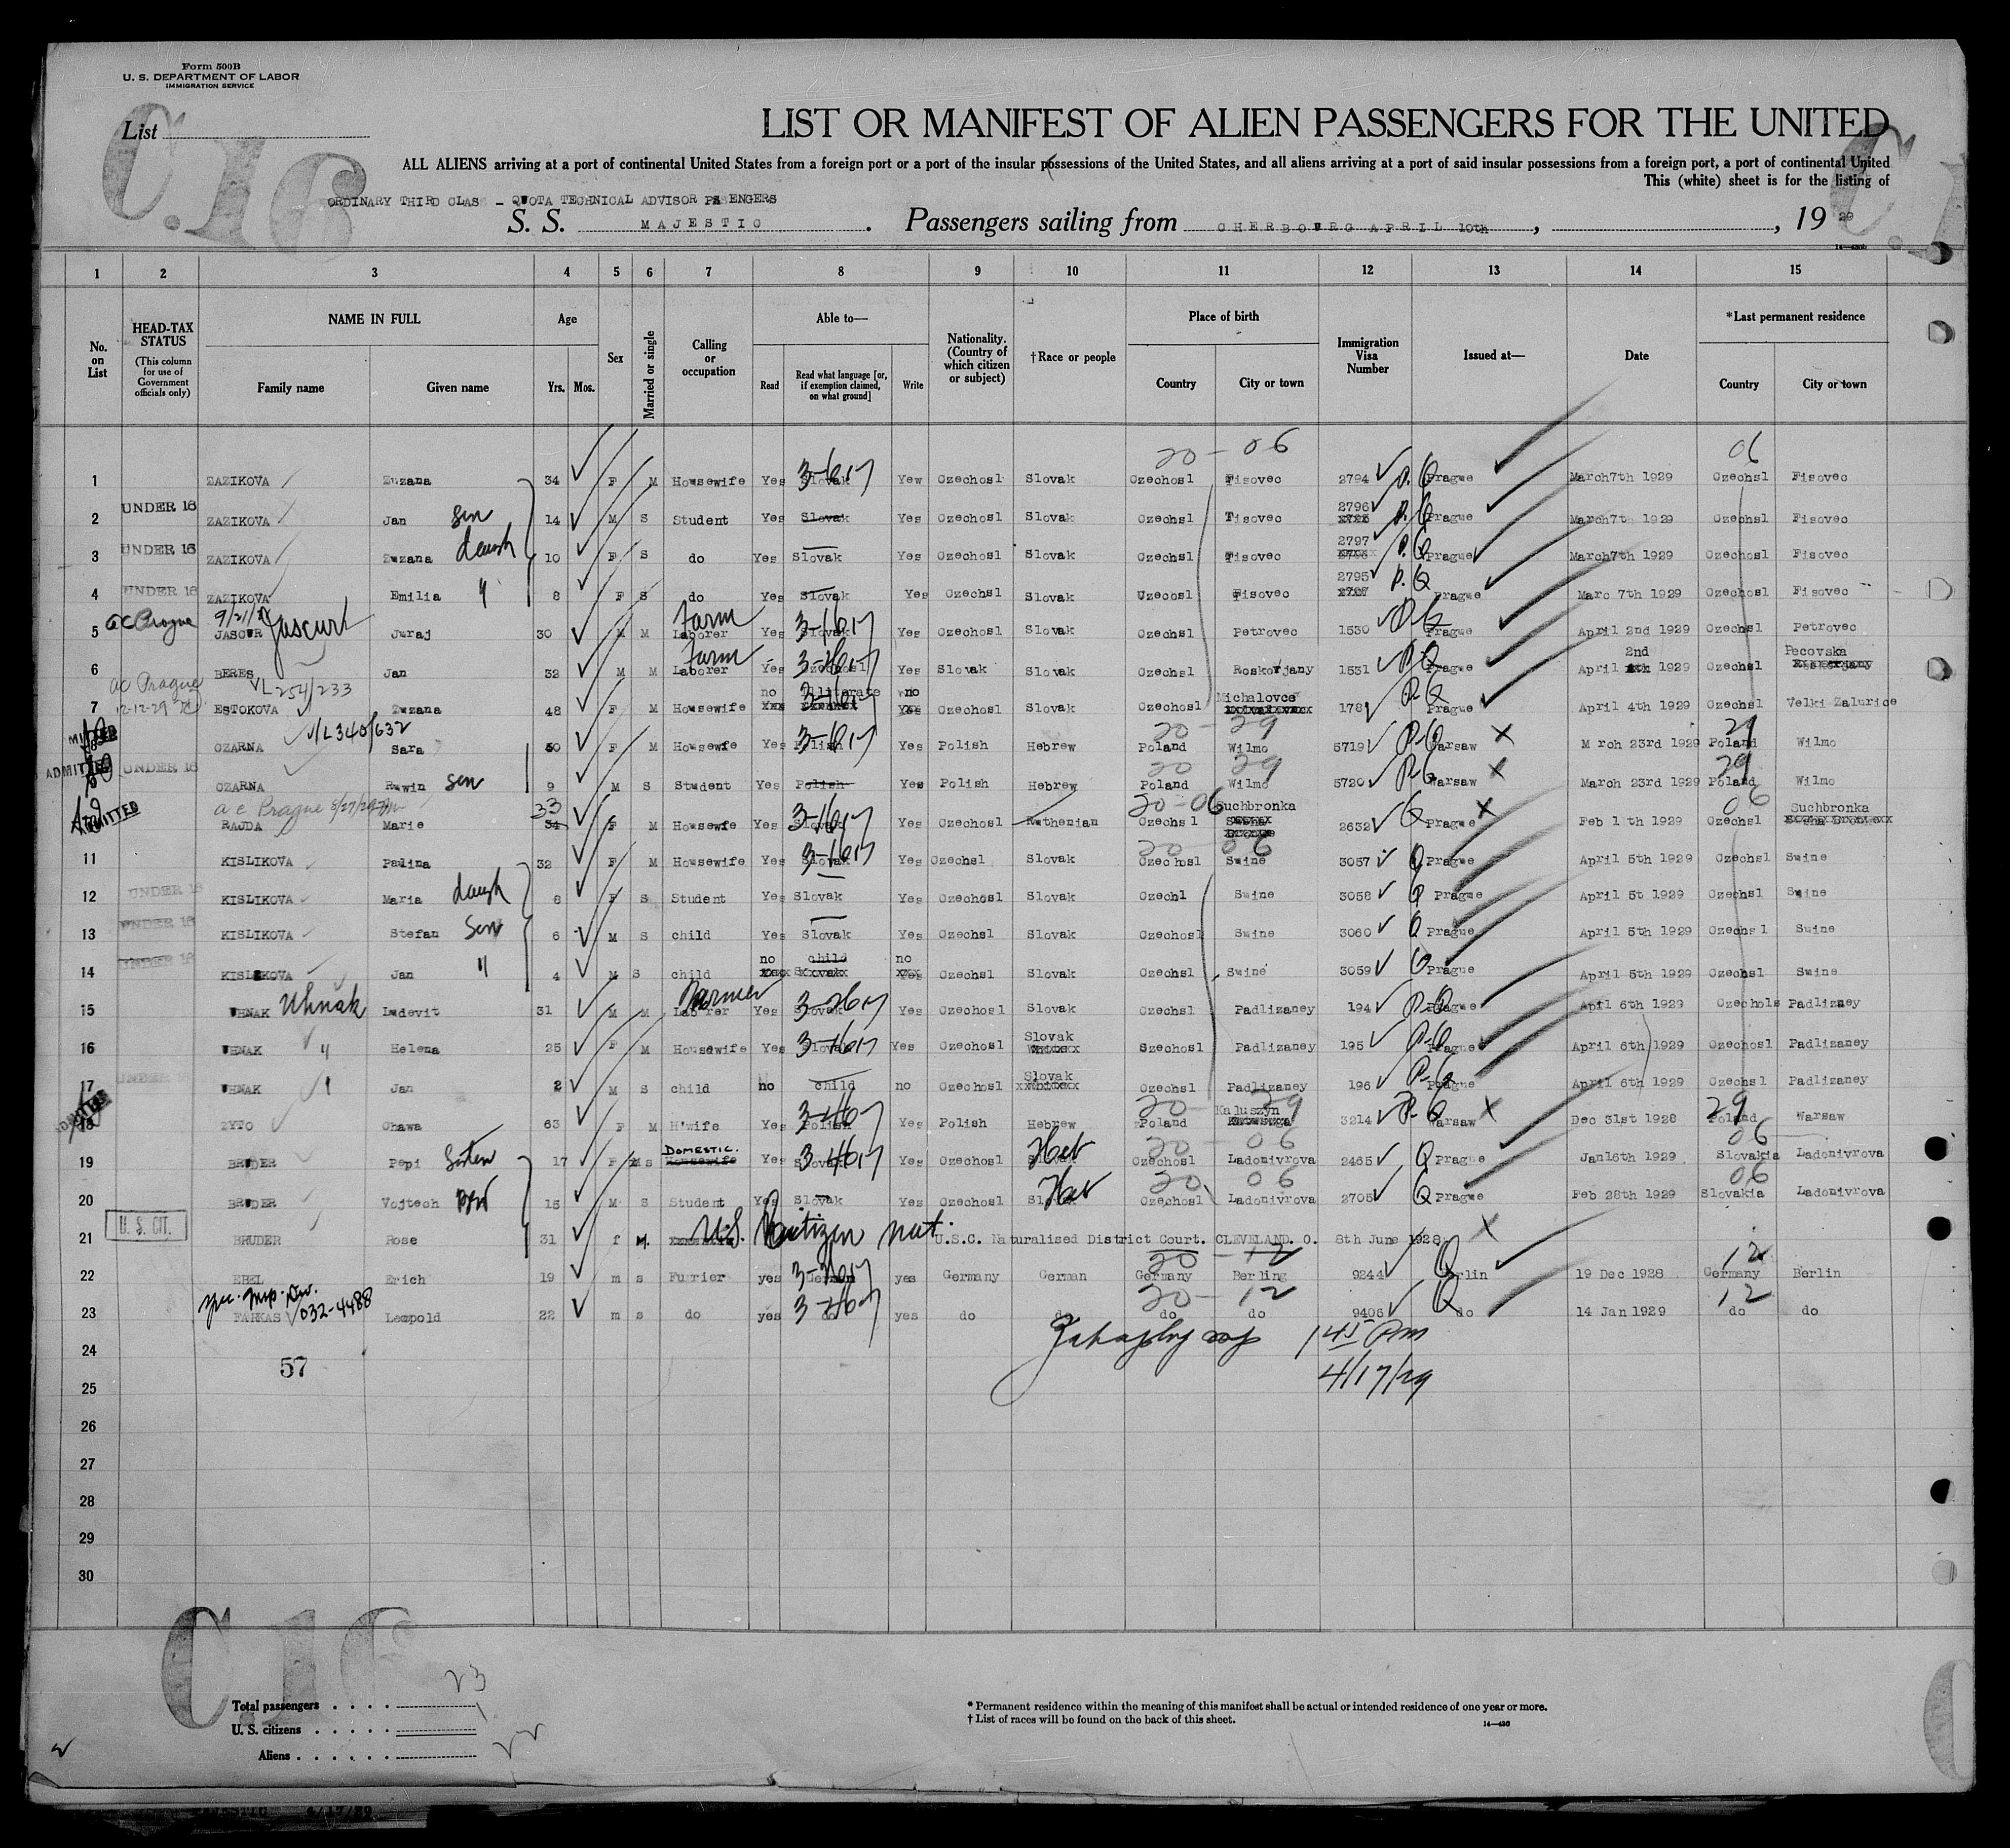 Form 500B
U. S. DEPARTMENT OF LABOR
IMMIGRATION SERVICE
C.16
List
LIST OR MANIFEST OF ALIEN PASSENGERS FOR THE UNITED
ALL ALIENS arriving at a port of continental United States from a foreign port or a port of the insular possessions of the United States, and all aliens arriving at a port of said insular possessions from a foreign port, a port of continental United
This (white) sheet is for the listing of
ORDINARY THIRD CLAS - QUOTA TECHNICAL ADVISOR PASENGERS
S. S. MAJESTIC. Passengers sailing from CHERBOURG APRIL 10th, , 19 29
1 2 3 4 5 6 7 8 9 10 11 12 13 14 15
No. on List HEAD-TAX STATUS (This column for use of Government officials only) NAME IN FULL Family name Given name Age Yrs. Mos. Sex Married or single Calling or occupation Able to— Read Read what language [or, if exemption claimed, on what ground] Write Nationality. (Country of which citizen or subject) †Race or people Place of birth Country City or town Immigration Visa Number Issued at— Date *Last permanent residence Country City or town
20 - 06 06
1 ZAZIKOVA Zuzana 34 F M Housewife Yes Slovak Yew Czechosl Slovak Czechosl Tisovec 2794 P.Q Prague March7th 1929 Czechsl Fisovec
2 UNDER 16 ZAZIKOVA Jan son 14 M S Student Yes Slovak Yes Czechosl Slovak Czechsl Tisovec 2796 P.Q Prague March7th 1929 Czechsl Fisovec
3 UNDER 16 ZAZIKOVA Zuzana daugh 10 F S do Yes Slovak Yes Czechosl Slovak Czechsl Tisovec 2797 P.Q Prague March7th 1929 Czechosl Fisovec
4 UNDER 16 ZAZIKOVA Emilia " 8 F S do Yes Slovak Yes Czechsl Slovak Czecosl Fisovec 2795 P.Q Prague Marc 7th 1929 Czechosl Fisovec
ac Prague 9/21/
5 JASCUR Jascurt Juraj 30 M M Farm Laborer Yes Slovak Yes Czechosl Slovak Czechsl Petrovec 1530 Prague April 2nd 1929 Czechsl Petrovec
6 BERES Jan 32 M M Farm Laborer Yes Czechosl Yes Slovak Slovak Czechsl Roskovjany 1531 P.Q Prague April 2nd 1929 Czechsl Pecovska
ac Prague 12-12-29 VL 254/233
7 ESTOKOVA Zuzana 48 F M Housewife no Illiterate no Czechosl Slovak Czechosl Michalovce 178 P-Q Prague April 4th 1929 Czechsl Velki Zalurice
V/L 340/632 20 - 29 29
ADMITTED CZARNA Sara 50 F M Housewfe Yes Polish Yes Polish Hebrew Poland Wilmo 5719 P-Q Warsaw M rch 23rd 1929 Poland Wilmo
ADMITTED UNDER 16 CZARNA Ruwin son 9 M S Student Yes Polish Yes Polish Hebrew Poland Wilmo 5720 Warsaw March 23rd 1929 Poland Wilmo
a c Prague 8/27/29
ADMITTED RAJDA Marie 33 F M Housewfe Yes Slovak Yes Czechosl Ruthenian Czechs l Suchbronka 2632 Q Prague Feb 1 th 1929 Czechsl Suchbronka
20 - 06
11 KISLIKOVA Palina 32 F M Housewife Yes Slovak Yes Czechsl Slovak Czechosl Swine 3057 Q Prague April 5th 1929 Czechsl Swine
12 UNDER 16 KISLIKOVA Maria daugh 8 F S Student Yes Slovak Yes Czechosl Slovak Czechl Swine 3058 Q Prague April 5t 1929 Czechsl Swine
13 UNDER 16 KISLIKOVA Stefan son 6 M S child Yes Slovak Yes Czechsl Slovak Czechosl Swine 3060 Q Prague April 5th 1929 Czechs l Swine
14 UNDER 16 KISLIKOVA Jan " 4 M S child no child no Czechsl Slovak Czechsl Swine 3059 Q Prague April 5th 1929 Czechsl Swine
15 UHNAK Uhnak Ludevit 31 M M Farmer Laborer Yes Slovak Yes Czechosl Slovak Czechsl Padlizaney 194 P-Q Prague April 6th 1929 Czechols Padlizney
16 UHNAK " Helena 25 F M Housewife Yes Slovak Yes Czechosl Slovak Szechosl Padlizaney 195 P-Q Prague April 6th 1929 Czechosl Padlizaney
17 UNDER 16 UHNAK " Jan 2 M S child no child no Czechosl Slovak Czechsl Padlizaney 196 P-Q Prague April 6th 1929 Czechsl Padlizaney
18 ZYTO Chawa 63 F M H'wife Yes Polish Yes Polish Hebrew Poland Kaluszyn 3214 P-Q Warsaw Dec 31st 1928 Poland Warsaw
19 BRUDER Pepi Sister 17 F S DOMESTIC. Housewife Yes Slovak Yes Czechosl Heb Czechosl Ladonivrova 2465 Q Prague Jan16th 1929 Slovakia Ladonivrova
20 BRUDER Vojtech Bro 15 M S Student Yes Slovak Yes Czechosl Heb Czechosl Ladonivrova 2705 Q Prague Feb 28th 1929 Slovakia Ladonivrova
21 U. S. CIT. BRUDER Rose 31 f M. U.S. Citizen nat. U.S.C. Naturalised District Court. CLEVELAND. O. 8th June 1928.
20 - 12 12
22 EBEL Erich 19 m s Furrier yes German yes Germany German Germany Berling 9244 Q Berlin 19 Dec 1928 Germany Berlin
032-4488 20 - 12 12
23 FARKAS Leopold 22 m s do yes do yes do do do do 9406 Q do 14 Jan 1929 do do
24 145 PM
57
25 4/17/29
26
27
28
29
30
C.16
Total passengers . . . . 23
U. S. citizens . . . . . 1
Aliens . . . . . . 22
* Permanent residence within the meaning of this manifest shall be actual or intended residence of one year or more.
† List of races will be found on the back of this sheet.
14—430